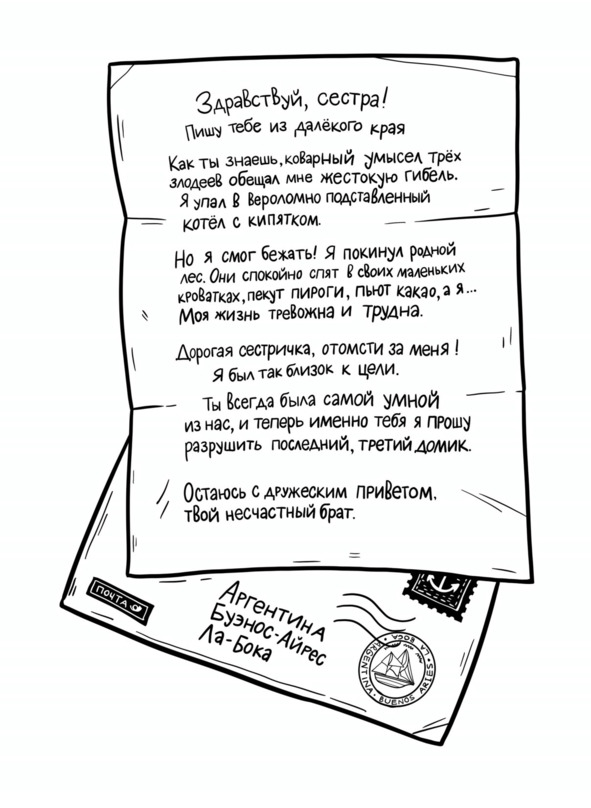 Здравствуй, сестра!
Пишу тебе из далёкого края
Как ты знаешь, коварный умысел трёх
злодеев обещал мне жестокую гибель.
Я упал в вероломно подставленный
котёл с кипятком.
Но я смог бежать! Я покинул родной
лес. Они спокойно спят в своих маленьких
кроватках, пекут пироги, пьют какао, а я...
Моя жизнь тревожна и трудна.
Дорогая сестричка, отомсти за меня!
Я был так близок к цели.
Ты всегда была самой умной
из нас, и теперь именно тебя я прошу
разрушить последний, третий домик.
Остаюсь с дружеским приветом,
твой несчастный брат.
ПОЧТА
Аргентина
Буэнос-Айрес
Ла-Бока
LA BOCA
ARGENTINA · BUENOS AIRES